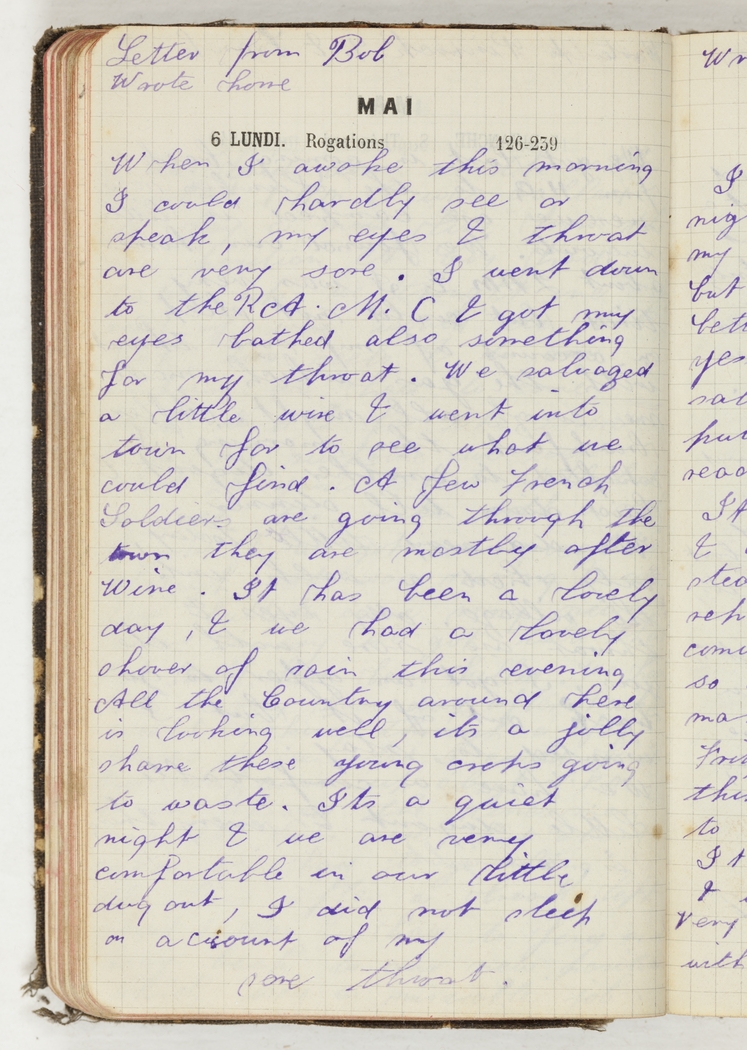 Letter from Bob
Wrote home
MAI
6 LUNDI. Rogations 126-239
When I awoke this morning
I could hardly see or
speak, my eyes & throat
are very sore. I went down
to the R.A.M.C & got my
eyes bathed also something
for my throat. We salvaged
a little wire & went into
town for to see what we
could find. A few French
Soldiers are going through the
town they are mostly after
Wine. It has been a lovely
day, & we had a lovely
shover of rain this evening
All the Country around here
is looking well, its a jolly
shame these young crops going
to waste. Its a quiet
night & we are very
comfortable in our little
dug out, I did not sleep
on account of my
sore throat.
Wr
I
nig
my
but
bett
yes
sal
pu
read
It
&
stea
reh
comi
so
ma
Fri
this
to
I t
&
very
with